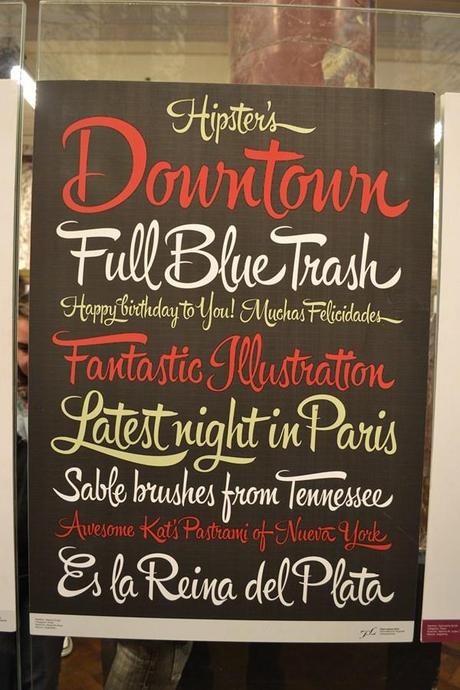 Hipster's
Downtown
Full Blue Trash
Happy birthday to You! Muchas Felicidades
Fantastic Illustration
Latest night in Paris
Sable brushes from Tennessee
Awesome Kat's Pastrami of Nueva York
Es la Reina del Plata